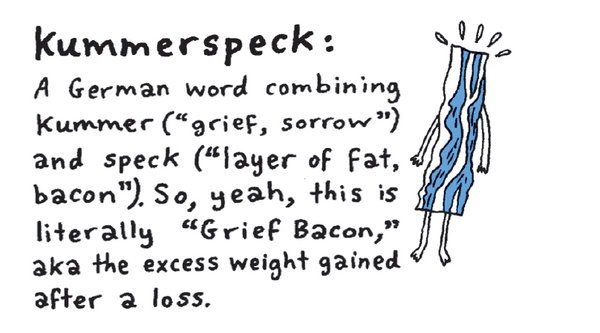 Kummerspeck:
A German word combining
Kummer ("grief, sorrow")
and speck ("layer of fat,
bacon"). So, yeah, this is
literally "Grief Bacon,"
aka the excess weight gained
after a loss.